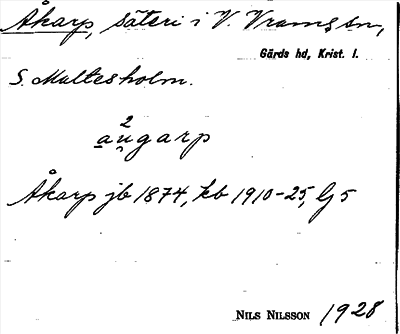 Åkarp, säteri i V. Vrams sn,
Gärds hd, Krist. l.
S. Maltesholm.
2
au̯garp
Åkarp jb 1874, kb 1910-25, Lj 5
NILS NILSSON 1928